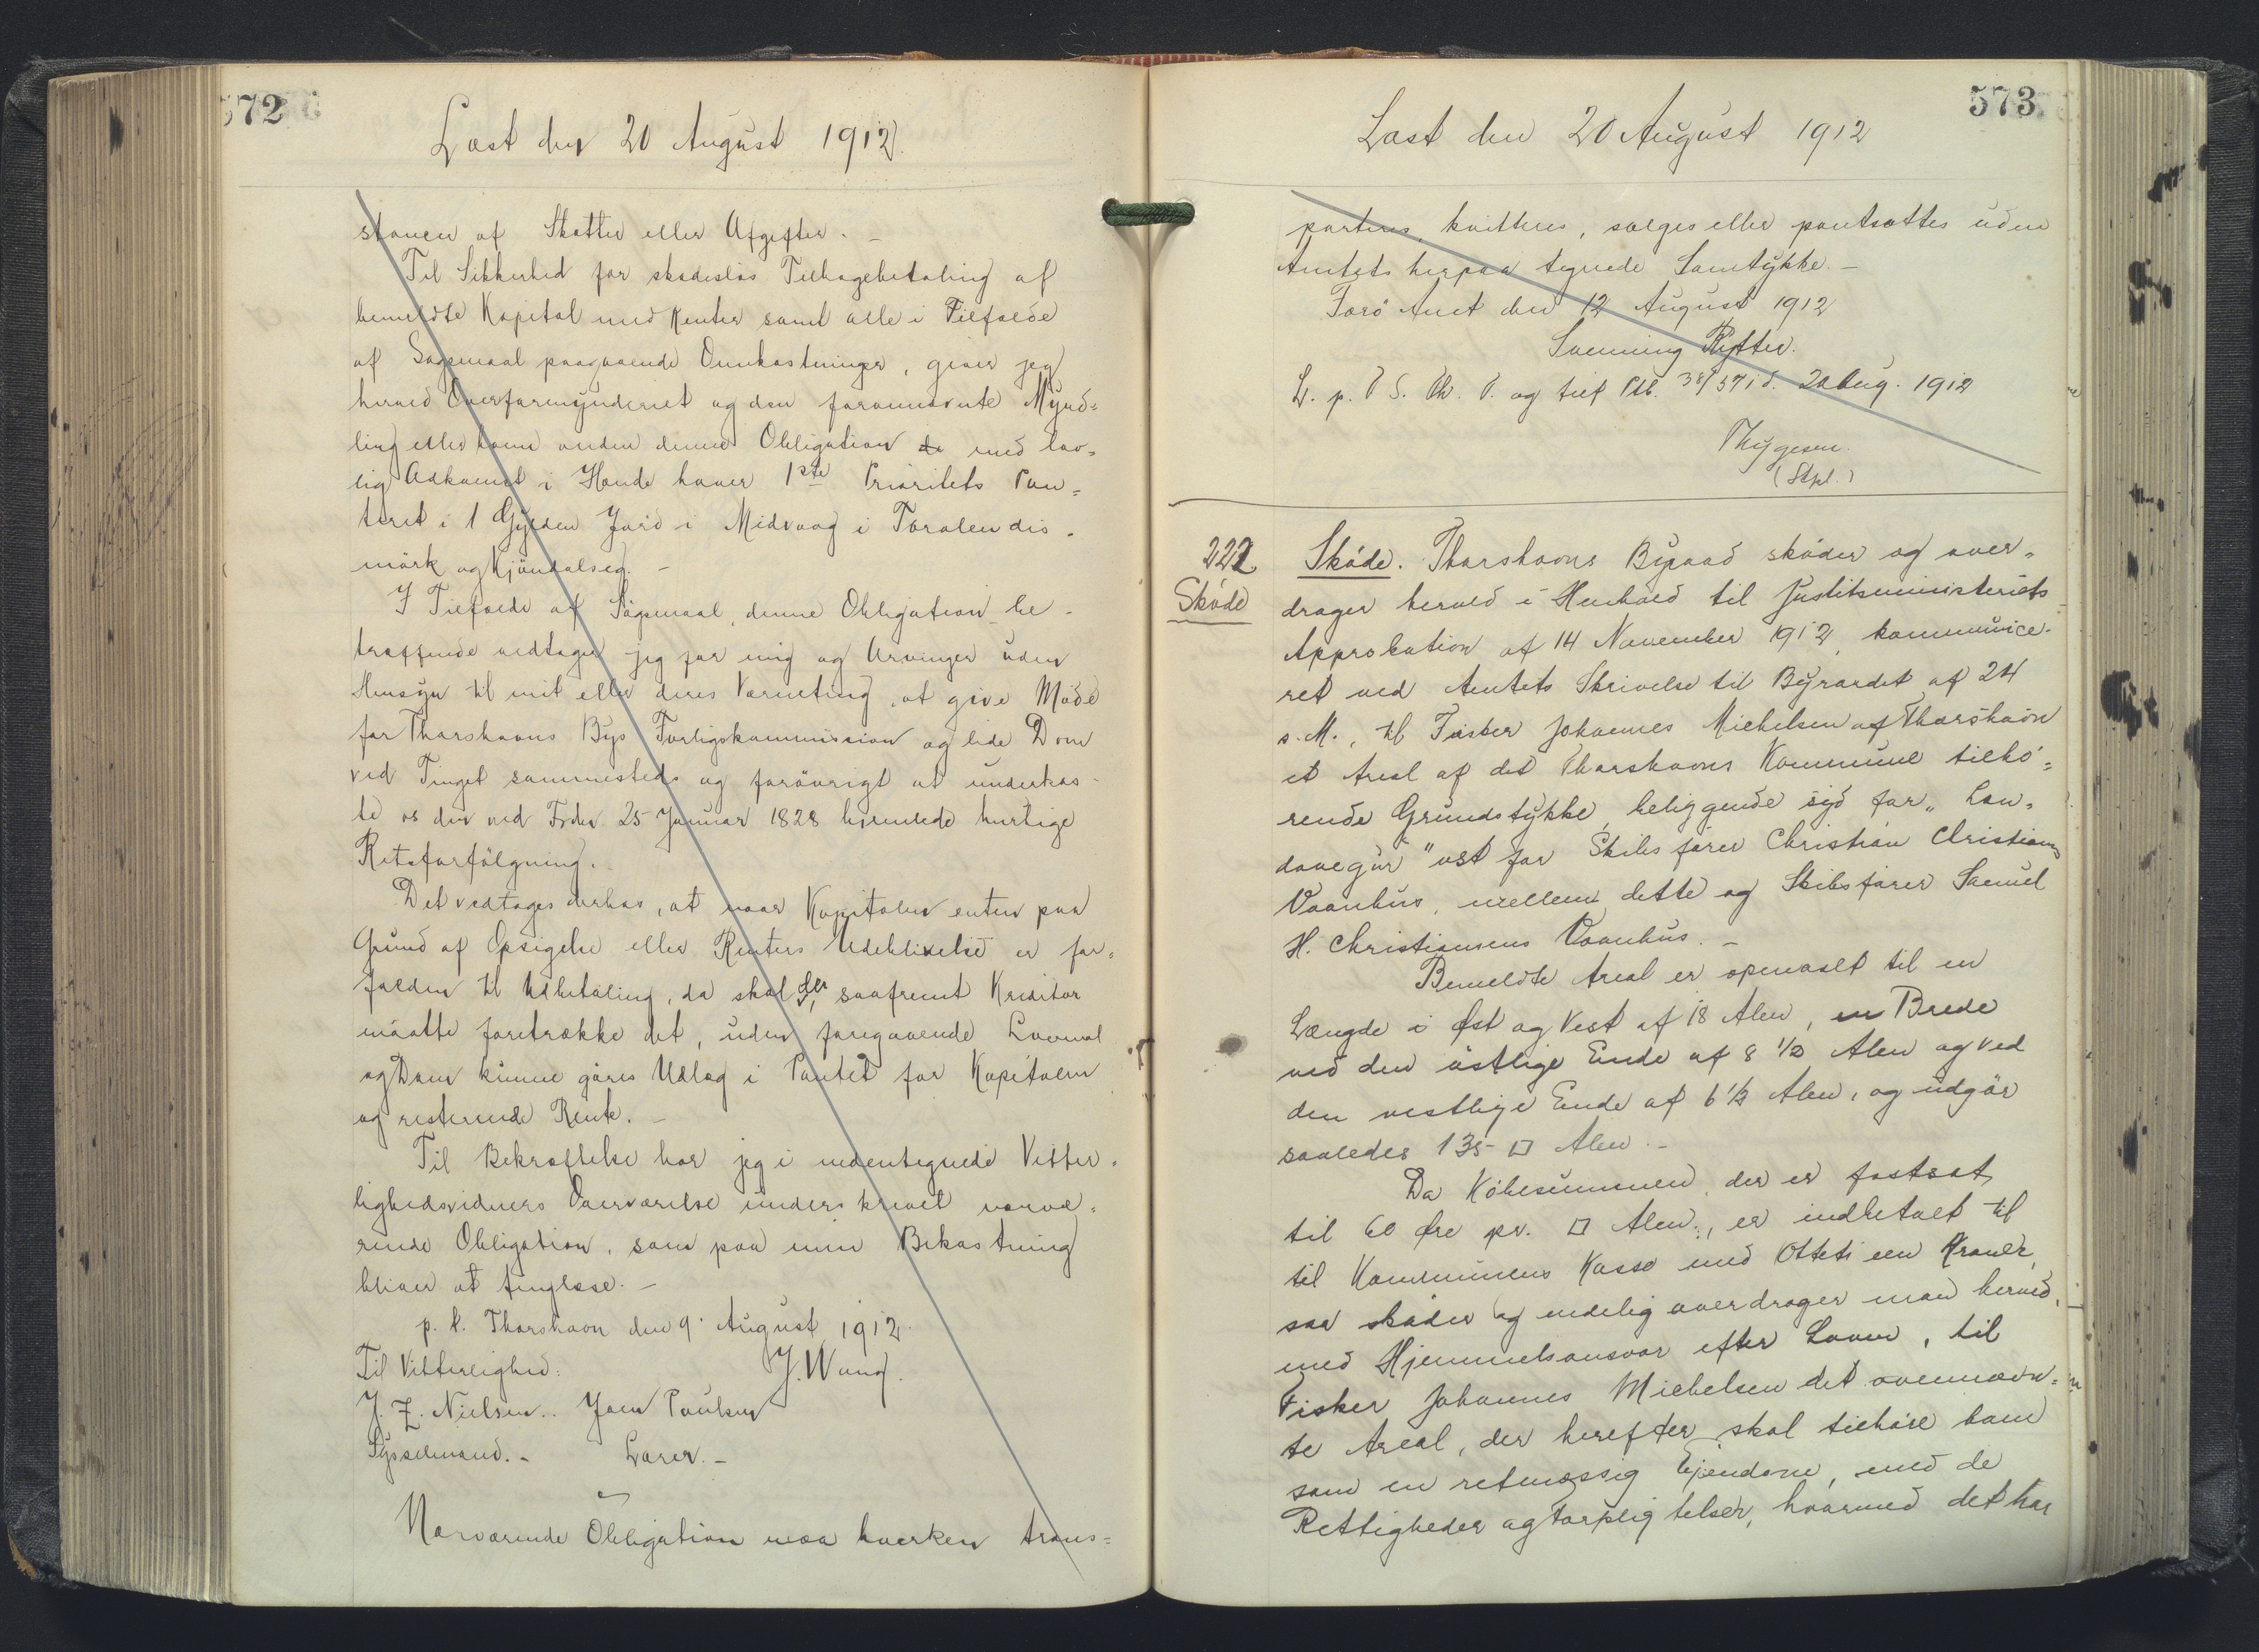 572
Læst den 20 August 1912.
stancer af Skatter eller Afgifter. –
Til Sikkerhed for skadesløs Tilbagebetaling af
bemeldte Kapital med Renter samt alle i Tilfælde
af Søgsmaal paagaaende Omkostninger, giver jeg
herved Overformynderiet og den forannævnte Mynd=
ling eller hvem anden denne Obligation med lov=
lig Adkomst i Hænde haver 1ste Prioritets Pan=
teret i 1 Gylden Jord i Midvaag i
mörk og
I Tilfælde af Sögsmaal, denne Obligation be-
træffende vedtager jeg for mig og Arvinger uden
Hensyn til mit eller deres Værneting, at give Möde
for Thorshavns Bys Forligskommission og lide Dom
ved Tinget sammesteds og forövrigt at underkas-
te os den ved Frdn. 25 Januar 1828 hjemlede hurtige
Retsforfölgning.
Det vedtages derhos, at naar Kapitalen enten paa
Grund af Opsigelse eller Renters Udeblivelse er for=
falden til Udbetaling, da skal der, saafremt Kreditor
maatte foretrække det, uden foregaaende Lovmaal
og Dom kunne göres Udlæg i Pantet for Kapitalen
og resterende Rente. –
Til Bekræftelse har jeg i medentegnede Vitter=
lighedsvidners Overværelse underskrevet nærvæ=
rende Obligation, som paa min Bekostning
bliver at tinglæse. –
p. t. Thorshavn den 9. August 1912.
Til Vitterlighed: J. Wang.
J. Z. Nielsen.. Joen Poulsen
Sysselmand. – Lærer. –
Nærværende Obligation maa hverken trans=
573
Læst den 20 August 1912
porteres, kvitteres, sælges eller pantsættes uden
Amtets herpaa tegnede Samtykke. –
Færö Amt den 12 August 1912
Svenning Rytter.
L. p. T. S. Th. V. og til Ptb. 38/571 d. 20 Aug. 1912
Thygesen.
(Stpl.)
222 Sköde. Thorshavns Byraad sköder og over=
Sköde drager herved i Henhold til Justitsministeriets
Approbation af 14 November 1912, kommunice-
ret ved Amtets Skrivelse til Byraadet af 24
s. M., til Fisker Johannes Michelsen af Thorshavn
et Areal af det Thorshavns Kommune tilhö=
rende Grundstykke, beliggende syd for
vest for Skibsförer Christian Christians
Vaanhus, mellem dette og Skibsförer Samuel
H. Christiansens Vaanhus. –
Bemeldte Areal er opmaalt til en
Længde i Øst og Vest af 18 Alen, en Brede
ved den östlige Ende af 8 1/2 Alen og ved
den vestlige Ende af 6 1/2 Alen, og udgör
saaledes 135 □ Alen. –
Da Köbesummen, der er fastsat
til 60 Øre pr. □ Alen, er indbetalt til
til Kommunens Kasse med Otteti een Kroner,
saa sköder og endelig overdrager man herved,
med Hjemmelsansvar efter Loven, til
Fisker Johannes Michelsen det ovennævn=
te Areal, der herefter skal tilhöre ham
som en retmæssig Ejendom, med de
Rettigheder og Forpligtelser, hvormed det har